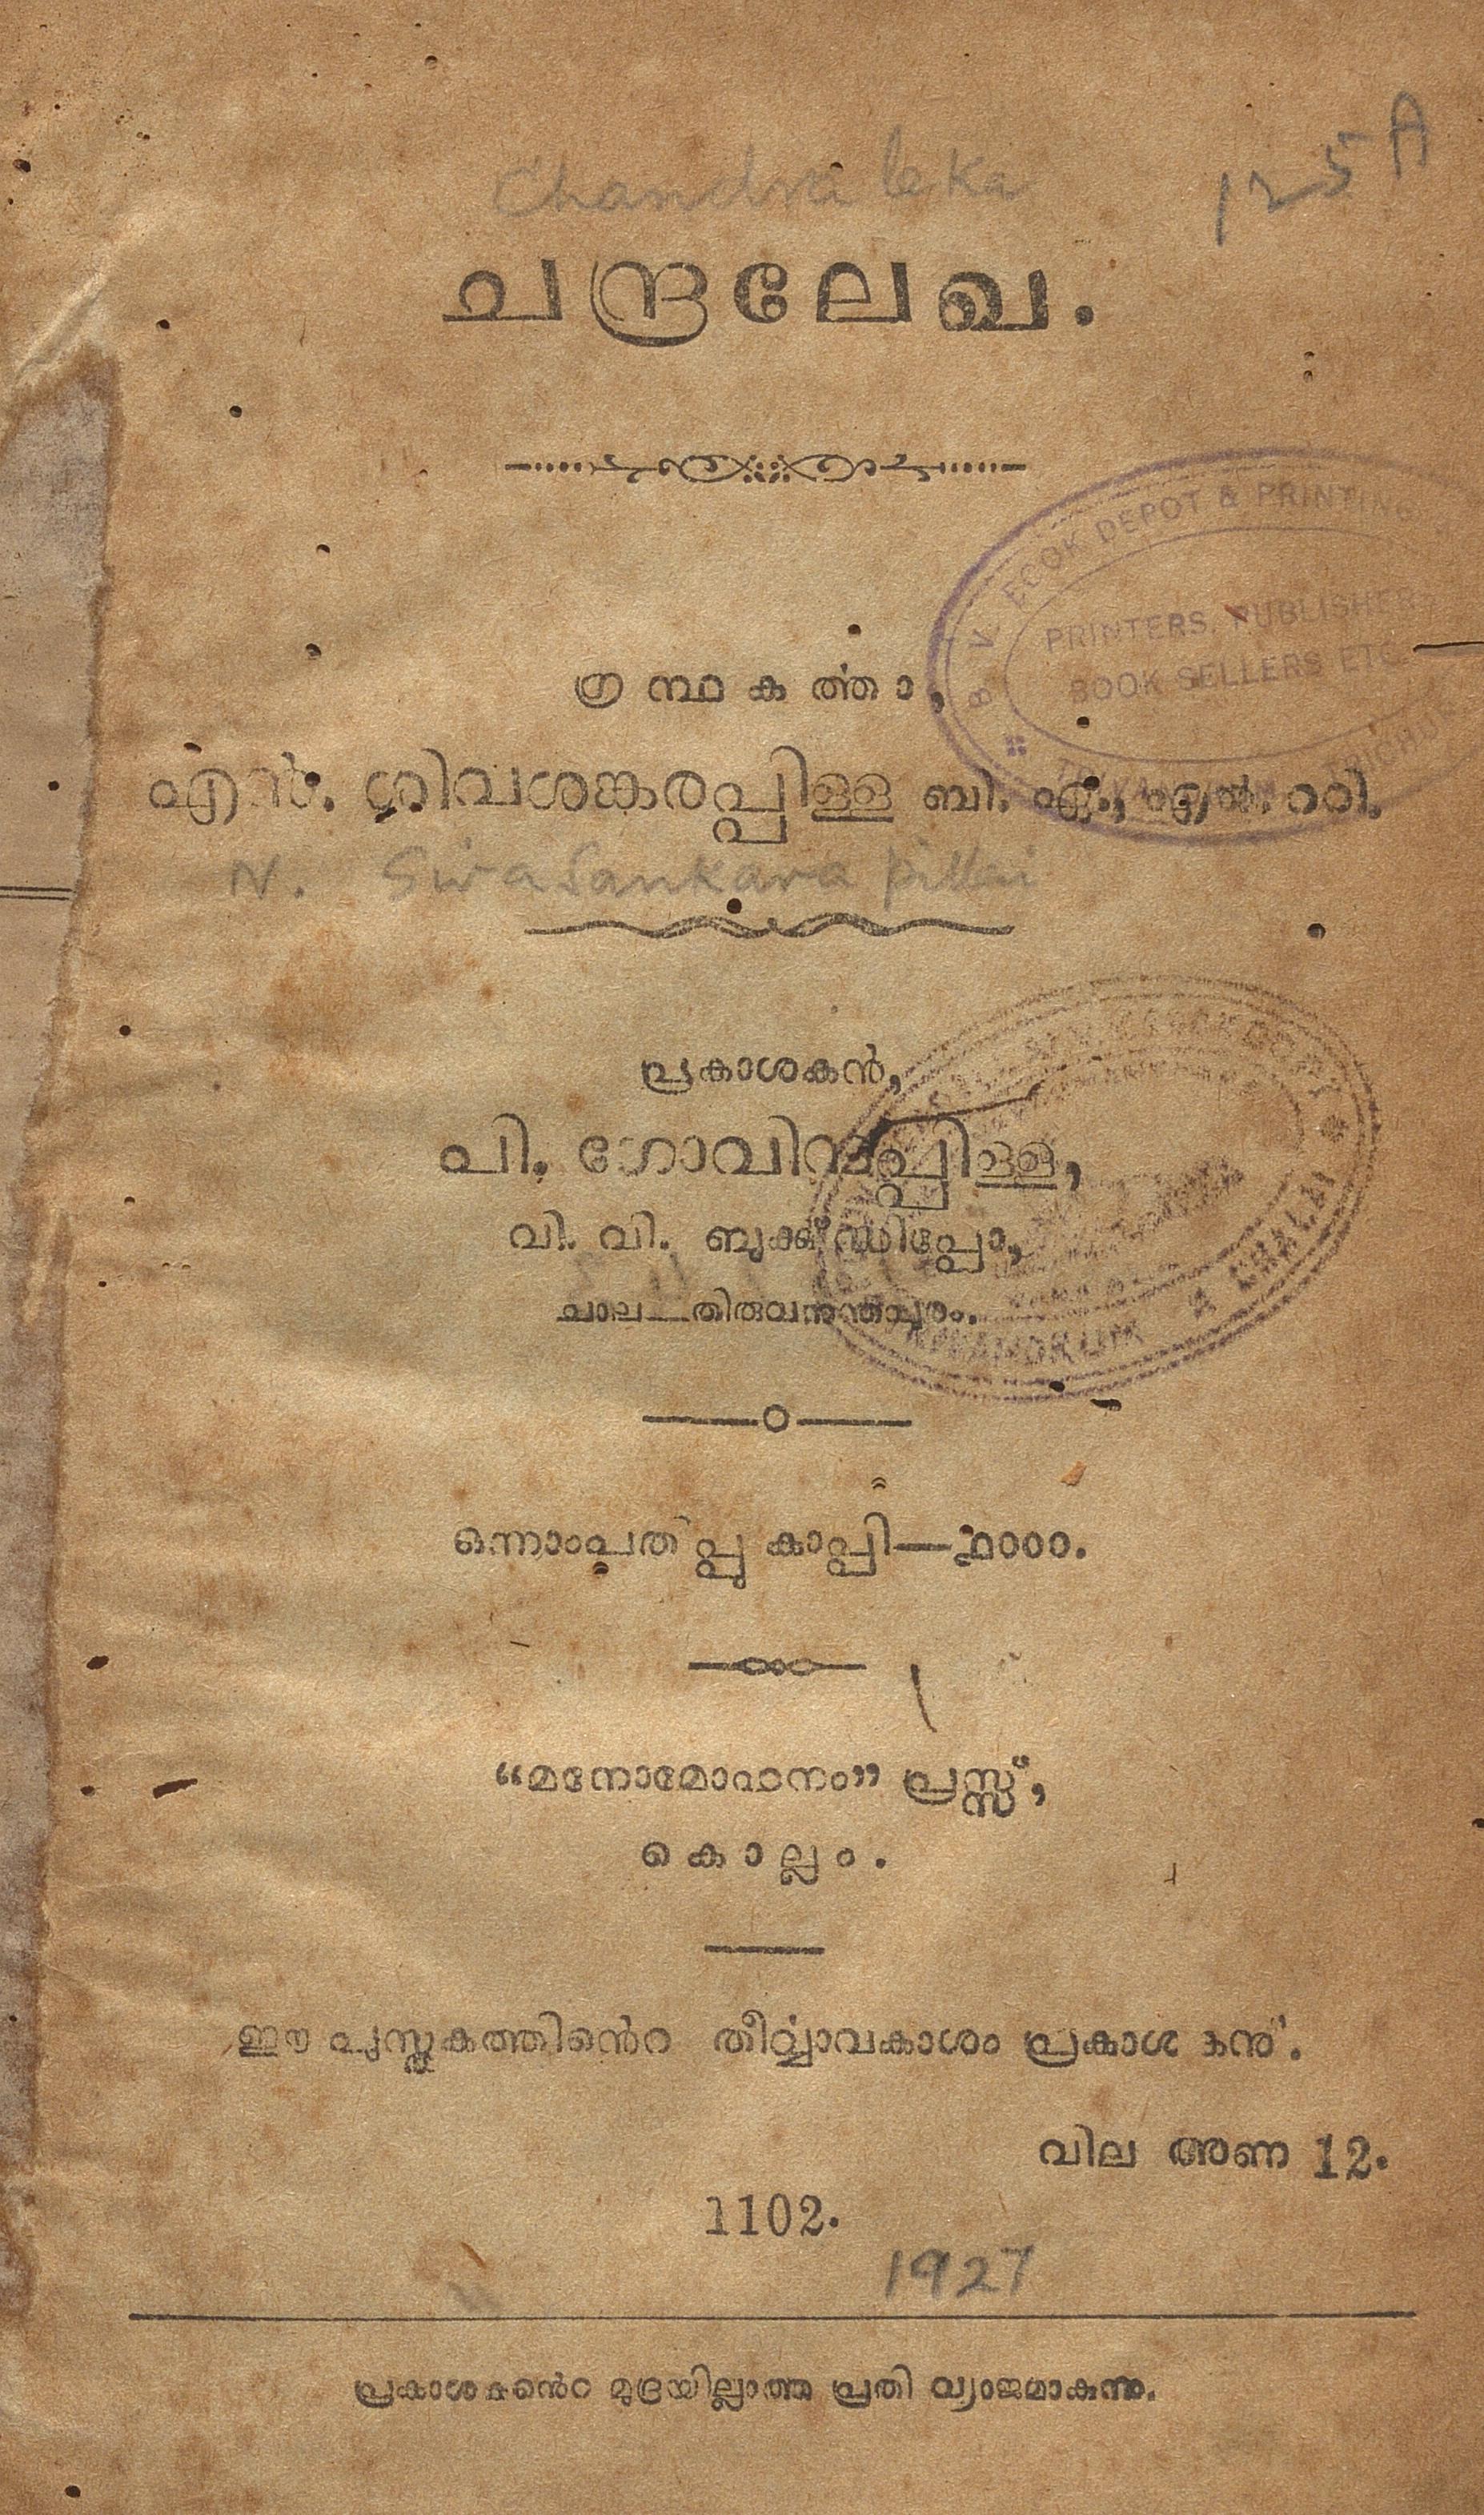 Chandraleka
125 A
ചന്ദ്രലേഖ.
B. V. BOOK DEPOT & PRINTING
PRINTERS, PUBLISHERS
BOOK SELLERS ETC
ഗ്രന്ഥകൎത്താ,
എൻ. ശിവശങ്കരപ്പിള്ള ബി. ഏ., എൽ. ററി.
N. Sivasankara pillai
പ്രകാശകൻ,
പി. ഗോവിന്ദപ്പിള്ള,
വി. വി. ബുക്ക്ഡിപ്പോ,
ചാല—തിരുവനന്തപുരം.
TRIVANDRUM & CHALAI
ഒന്നാംപതിപ്പു കാപ്പി—൧൦൦൦.
“മനോമോഹനം” പ്രസ്സ്,
കൊല്ലം.
ഈ പുസ്തകത്തിൻെറ തീൎവ്വാവകാശം പ്രകാശകനു്.
വില അണ 12.
1102.
1927
പ്രകാശകൻെറ മുദ്രയില്ലാത്ത പ്രതി വ്യാജമാകുന്നു.